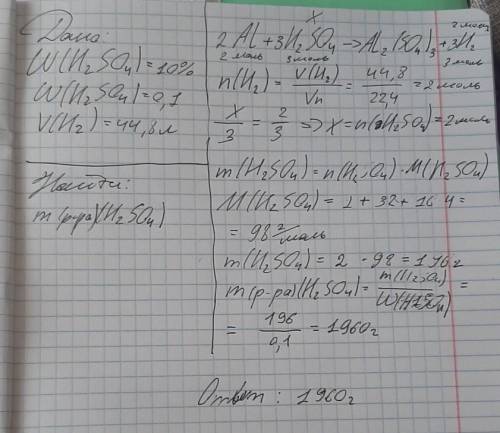 Дано:
W(H₂SO₄)=10%
W(H₂SO₄)=0,1
V(H₂)=44,8л
Найти:
m(р-ра)(H₂SO₄)
x 2 моль
2Al+3H₂SO₄→Al₂(SO₄)₃+3H₂
2 моль 3 моль 3 моль
n(H₂)=V(H₂)/Vn=44,8/22,4=2 моль
x/3=2/3⇒x=n(H₂SO₄)=2 моль
m(H₂SO₄)=n(H₂SO₄)·M(H₂SO₄)
M(H₂SO₄)=2+32+16·4=
=98 г/моль
m(H₂SO₄)=2·98=196г
m(р-ра)(H₂SO₄)=m(H₂SO₄)/W(H₂SO₄)=
=196/0,1=1960г
Ответ: 1960г